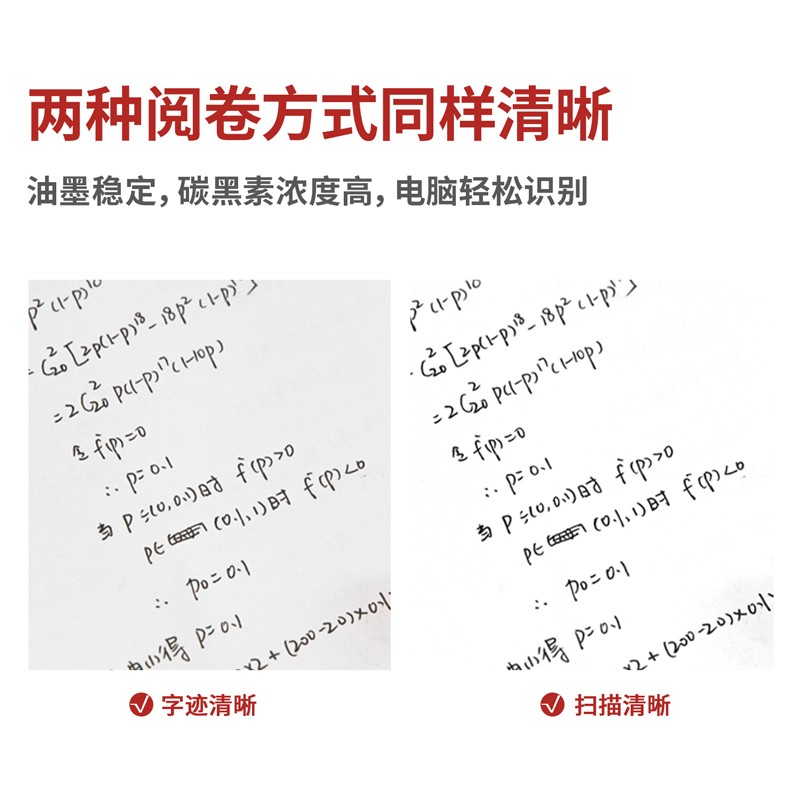 两种阅卷方式同样清晰
油墨稳定，碳黑素浓度高，电脑轻松识别
p²(1-p)¹⁸
= C²₂₀[2p(1-p)¹⁸-18p²(1-p)¹⁷]
=2C²₂₀ p(1-p)¹⁷(1-10p)
令f'(p)=0
∴ p=0.1
当 p=(0,0.1)时 f'(p)>0
p∈ (0.1,1)时 f'(p)<0
∴ p₀=0.1
由(1)得 p=0.1
×2+(200-20)×0.1
p²(1-p)¹⁸
C²₂₀[2p(1-p)¹⁸-18p²(1-p)¹⁷]
=2C²₂₀ p(1-p)¹⁷(1-10p)
令f'(p)=0
∴ p=0.1
当 p=(0,0.1)时 f'(p)>0
p∈ (0.1,1)时 f'(p)<0
∴ p₀=0.1
由(1)得 p=0.1
×2+(200-20)×0.1
字迹清晰
扫描清晰